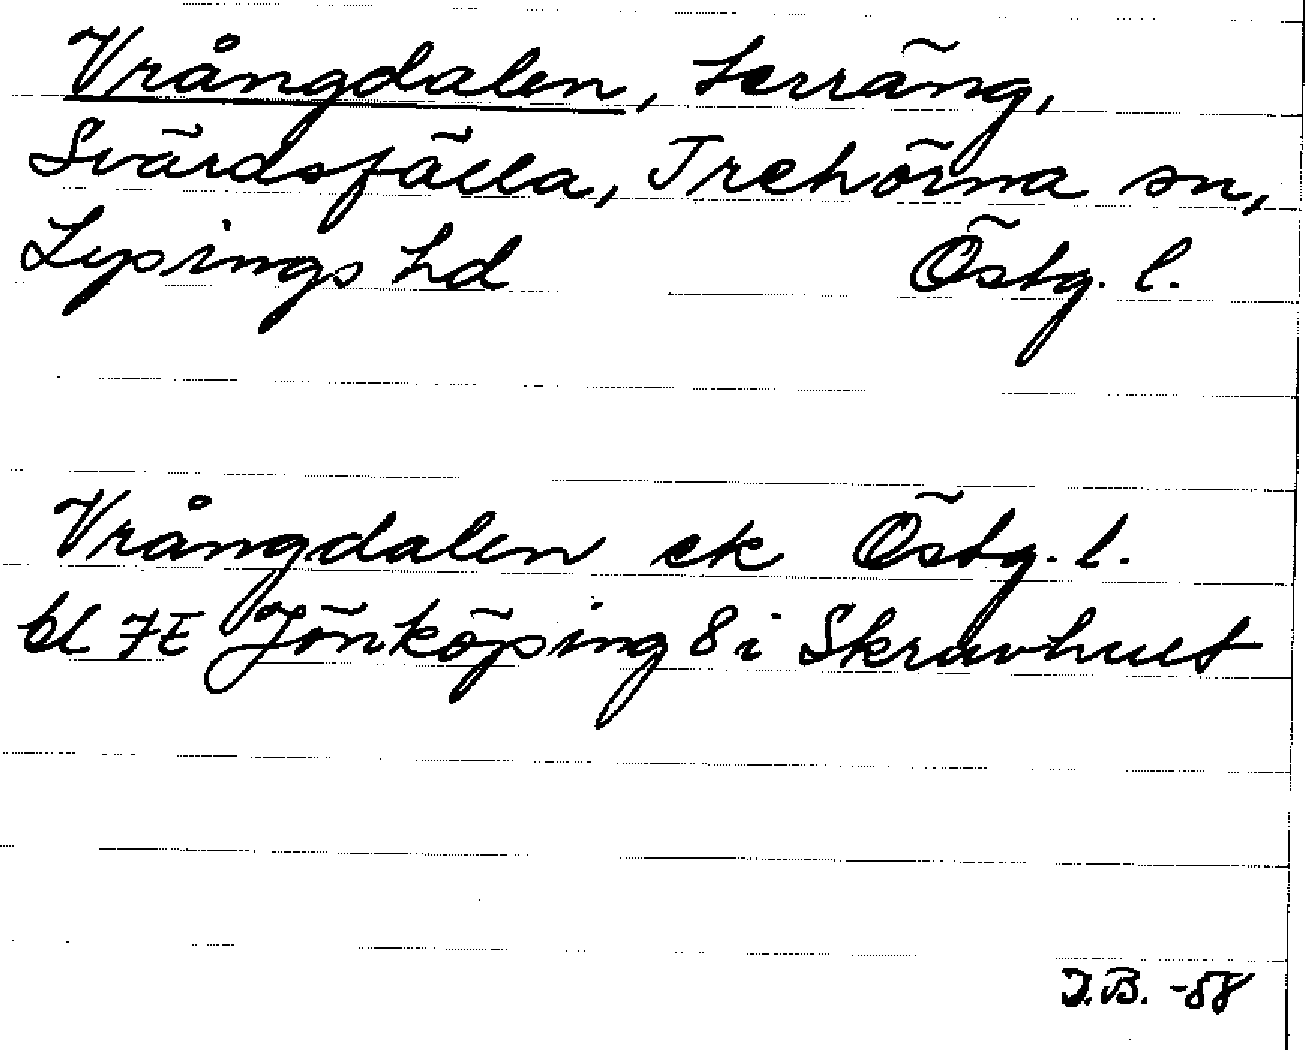 Vrångdalen, terräng,
Svärdsfälla, Trehörna sn,
Lysings hd Östg. l.
Vrångdalen ek Östg. l.
bl 7E Jönköping 8 i Skruvhult
J.B. -58